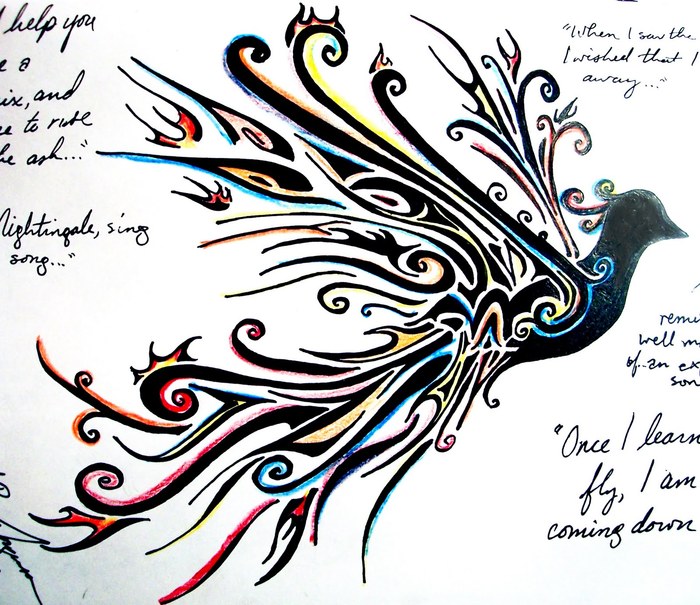 help you
a
ix, and
to rise
he ash..."
Nightingale, sing
song..."
"When I saw the
I wished that I
away..."
remi
well m
of..an ex
son
"Once I learn
fly, I am
coming down